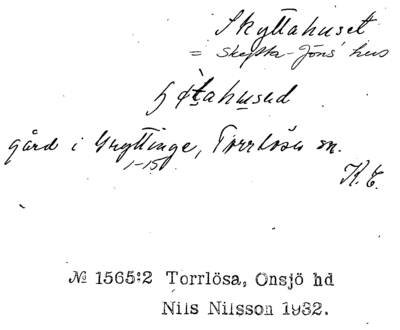 Skyttahuset
= Skytta-Jöns' hus
gård i Gryttinge, Torrlösa sn.
1-15
K.E.
№ 1565:2 Torrlösa, Onsjö hd
Nils Nilsson 1932.